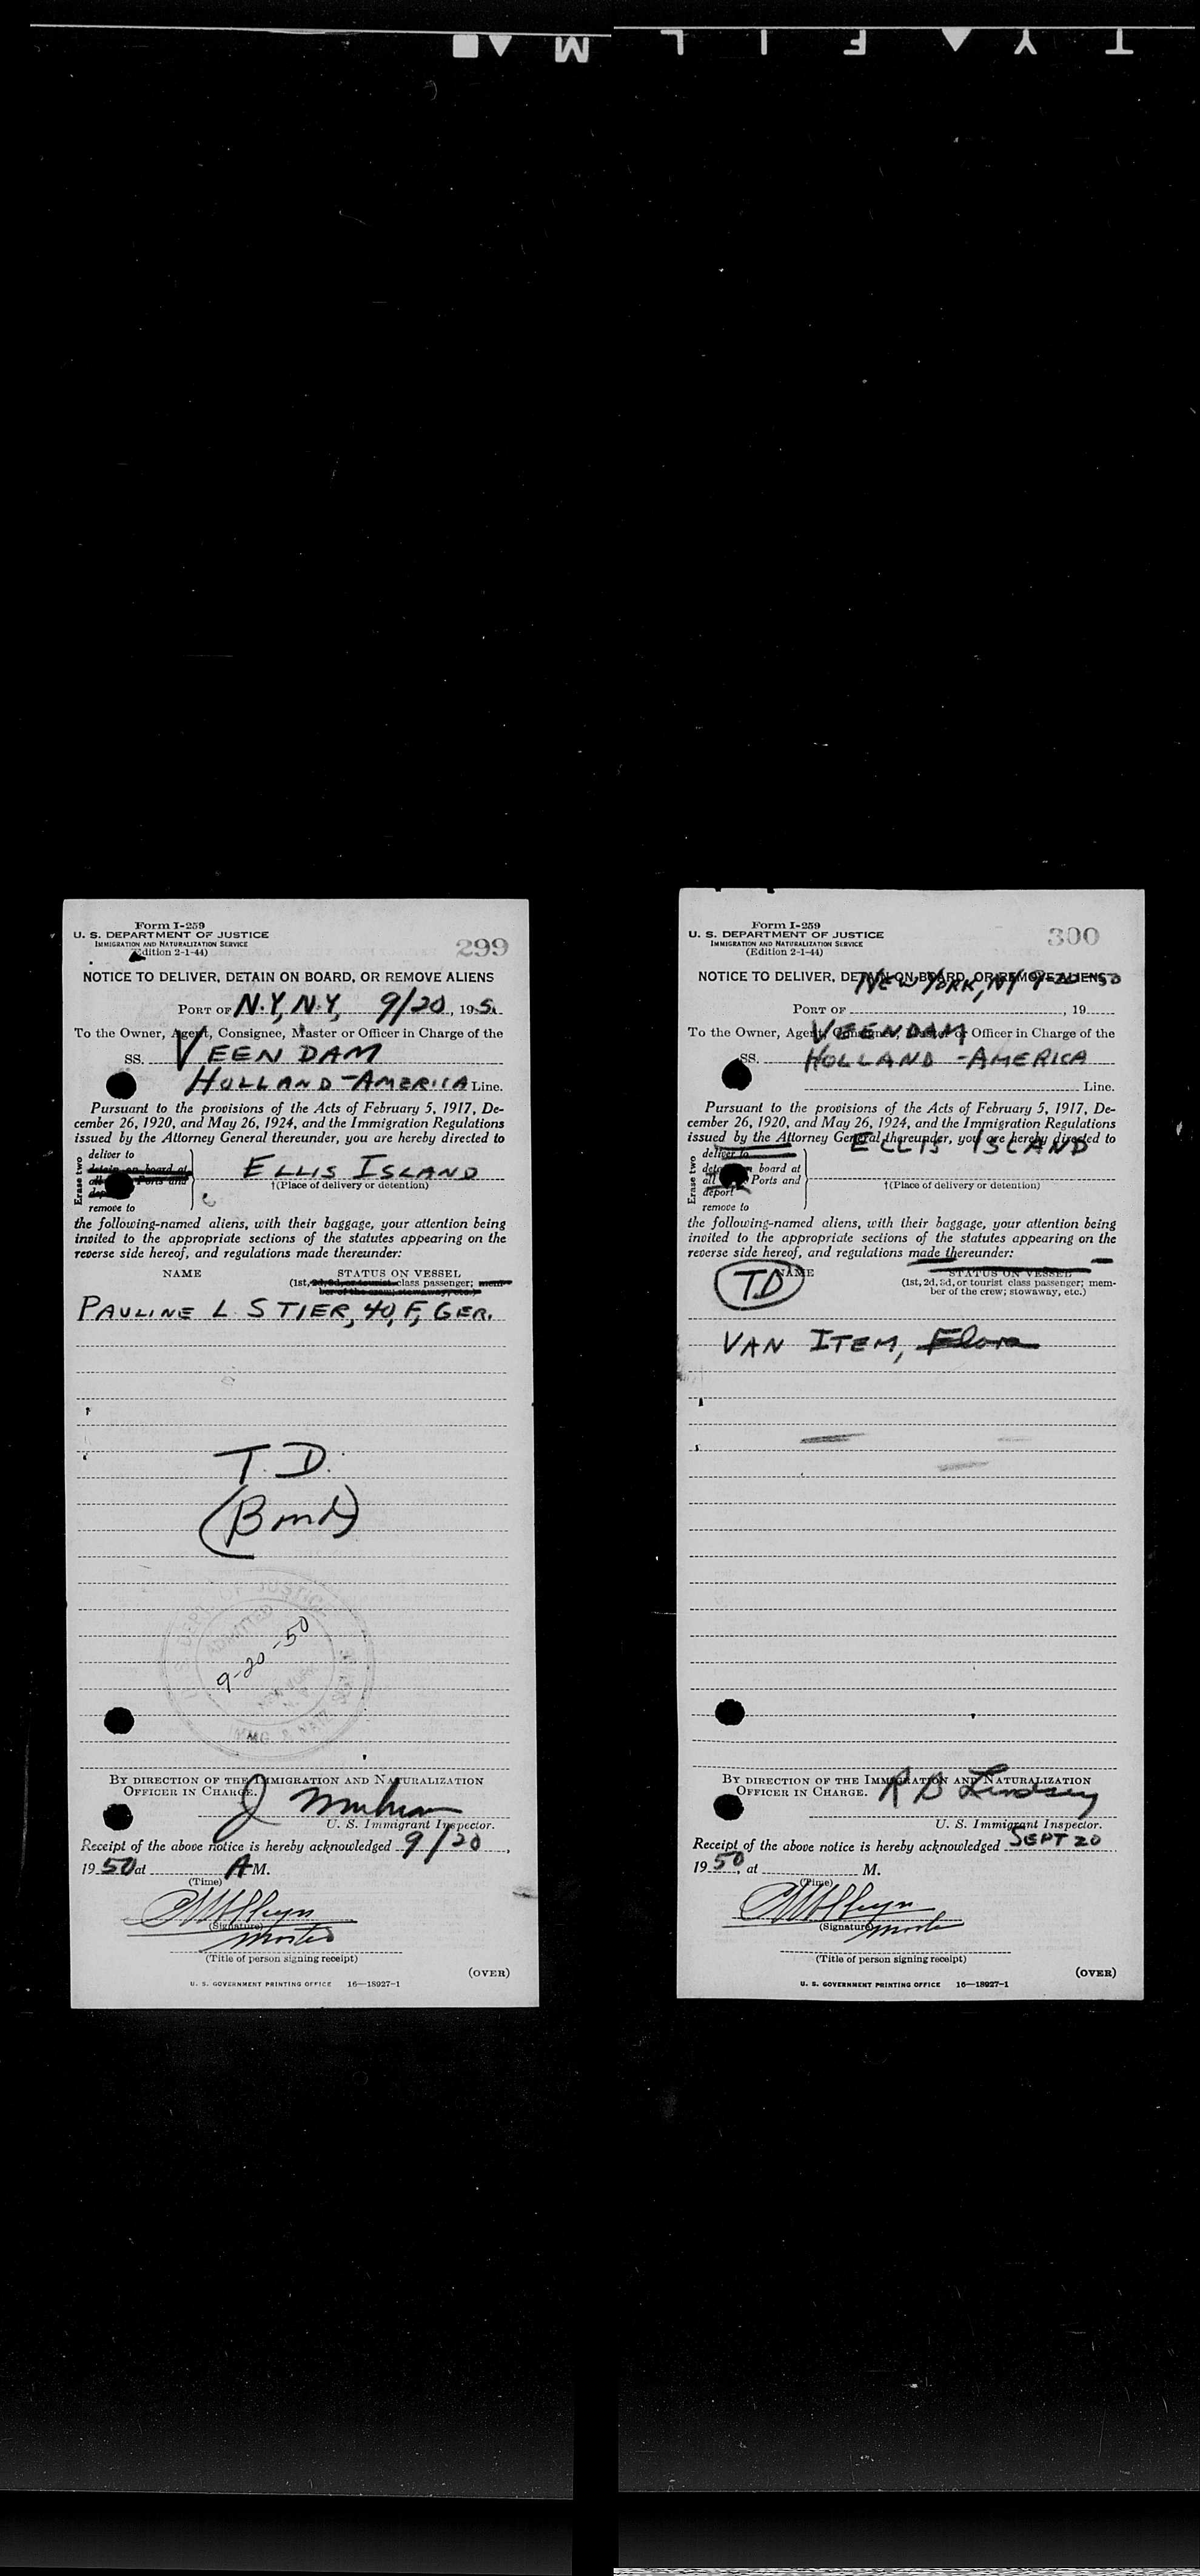 Form I-259
U. S. DEPARTMENT OF JUSTICE
IMMIGRATION AND NATURALIZATION SERVICE
(Edition 2-1-44)
299
NOTICE TO DELIVER, DETAIN ON BOARD, OR REMOVE ALIENS
PORT OF N.Y, N.Y, 9/20, 195
To the Owner, Agent, Consignee, Master or Officer in Charge of the
SS. VEENDAM
HOLLAND-AMERICA Line.
Pursuant to the provisions of the Acts of February 5, 1917, De-
cember 26, 1920, and May 26, 1924, and the Immigration Regulations
issued by the Attorney General thereunder, you are hereby directed to
Erase two
deliver to
detain on board at
all Ports and
deport
remove to
ELLIS ISLAND
†(Place of delivery or detention)
the following-named aliens, with their baggage, your attention being
invited to the appropriate sections of the statutes appearing on the
reverse side hereof, and regulations made thereunder:
NAME STATUS ON VESSEL
(1st, 2d, 3d, or tourist class passenger; mem-
ber of the crew; stowaway, etc.)
PAULINE L STIER, 40, F, GER.
T. D.
(Bond)
U. S. DEPT. OF JUSTICE
ADMITTED
9-20-50
NEW YORK
N. Y.
IMMG & NATZ SERVICE
BY DIRECTION OF THE IMMIGRATION AND NATURALIZATION
OFFICER IN CHARGE.
U. S. Immigrant Inspector.
Receipt of the above notice is hereby acknowledged 9/20,
1950 at A M.
(Time)
(Signature)
Master
(Title of person signing receipt)
(OVER)
U. S. GOVERNMENT PRINTING OFFICE 16—18927-1
Form I-259
U. S. DEPARTMENT OF JUSTICE
IMMIGRATION AND NATURALIZATION SERVICE
(Edition 2-1-44)
300
NOTICE TO DELIVER, DETAIN ON BOARD, OR REMOVE ALIENS
NEW YORK, NY 9-20-50
PORT OF , 19
To the Owner, Agent, Consignee, Master or Officer in Charge of the
VEENDAM
SS. HOLLAND-AMERICA
Line.
Pursuant to the provisions of the Acts of February 5, 1917, De-
cember 26, 1920, and May 26, 1924, and the Immigration Regulations
issued by the Attorney General thereunder, you are hereby directed to
ELLIS ISLAND
Erase two
deliver to
detain on board at
all Ports and
deport
remove to
†(Place of delivery or detention)
the following-named aliens, with their baggage, your attention being
invited to the appropriate sections of the statutes appearing on the
reverse side hereof, and regulations made thereunder:
TD
NAME STATUS ON VESSEL
(1st, 2d, 3d, or tourist class passenger; mem-
ber of the crew; stowaway, etc.)
VAN ITEM, Flora
BY DIRECTION OF THE IMMIGRATION AND NATURALIZATION
OFFICER IN CHARGE. R B Lindsey
U. S. Immigrant Inspector.
Receipt of the above notice is hereby acknowledged SEPT 20
1950, at M.
(Time)
(Signature)
Master
(Title of person signing receipt)
(OVER)
U. S. GOVERNMENT PRINTING OFFICE 16—18927-1